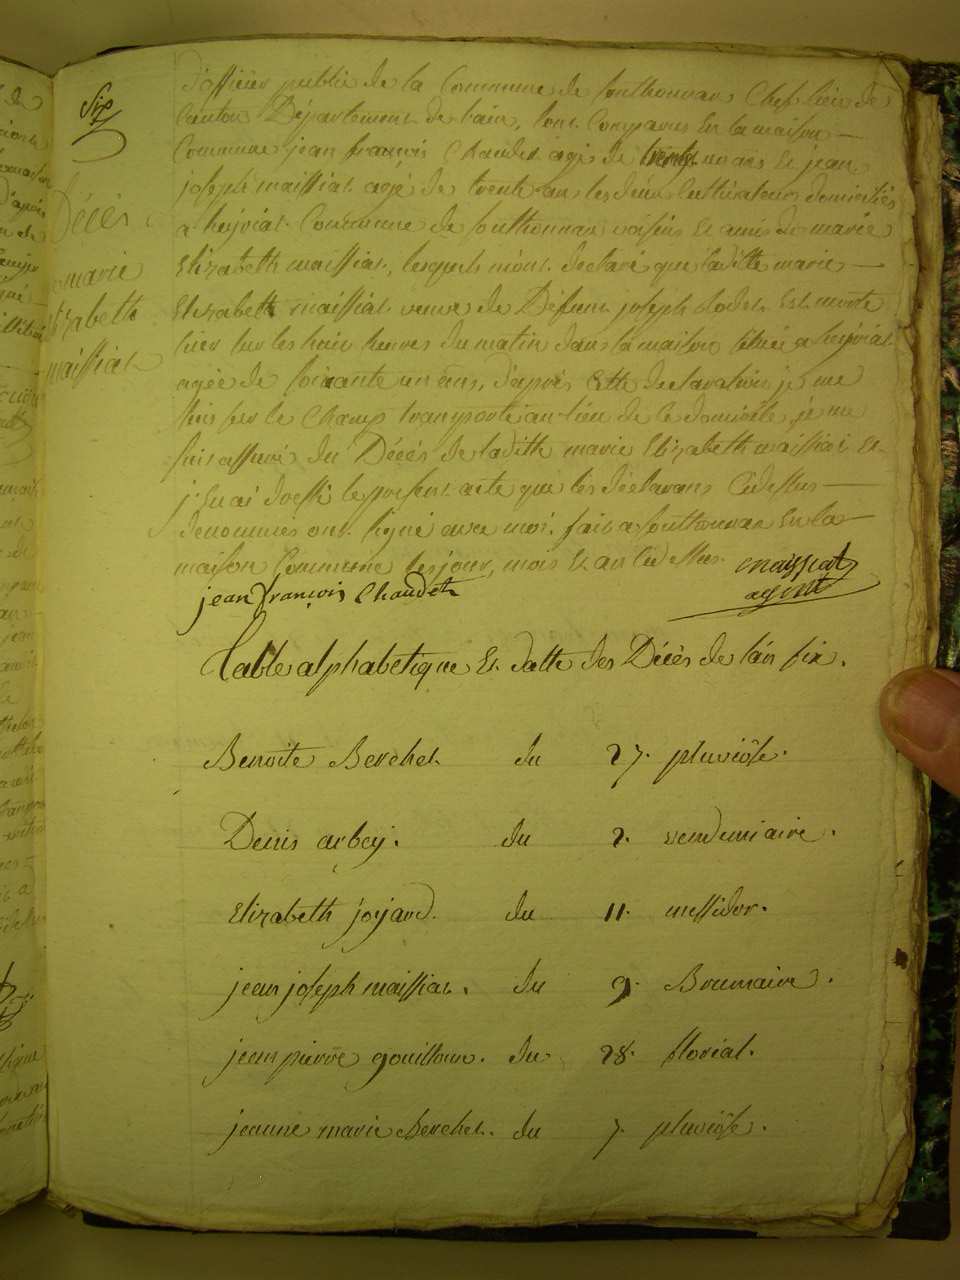 Six
Décès
marie
Elizabeth
maissiat
d'officier public de la Commune de Southonnax Chef lieu de
Canton Département de l'ain, sont Comparus En la maison
Commune jean françois Chaudet agé de trente un ans Et jean
joseph maissiat agé de trente ans les deux Cultivateurs domiciliés
a heyriat Commune de Southonnax voisins Et amis de marie
Elizabeth maissiat, lesquels m'ont declaré que laditte marie
Elizabeth maissiat veuve de Défunt joseph Est morte
hier sur les huit heures du matin dans la maison située a heyriat
agée de soixante un ans, d'après Cette declaration je me
suis sur le Champ transporté au lieu de ce domicile, je me
suis assuré du Décès de laditte marie Elizabeth maissiat Et
j'En ai dressé le présent acte que les déclarans Cidessus
denommés ont signé avec moi. fait a Southonnax En la
maison Commune les jour, mois Et an Cidessus.
maissiat
agent
jean françois Chaudet
Table alphabetique Et datte des Décès de l'an six.
Benoite Berchet du 27. pluviôse.
Denis arbey. du 2. vendemiaire.
Elizabeth joyard. du 11. messidor.
jean joseph maissiat. du 9. Brumaire.
jean pierre gouilloux. du 28. floréal.
jeanne marie Berchet. du 7. pluviôse.